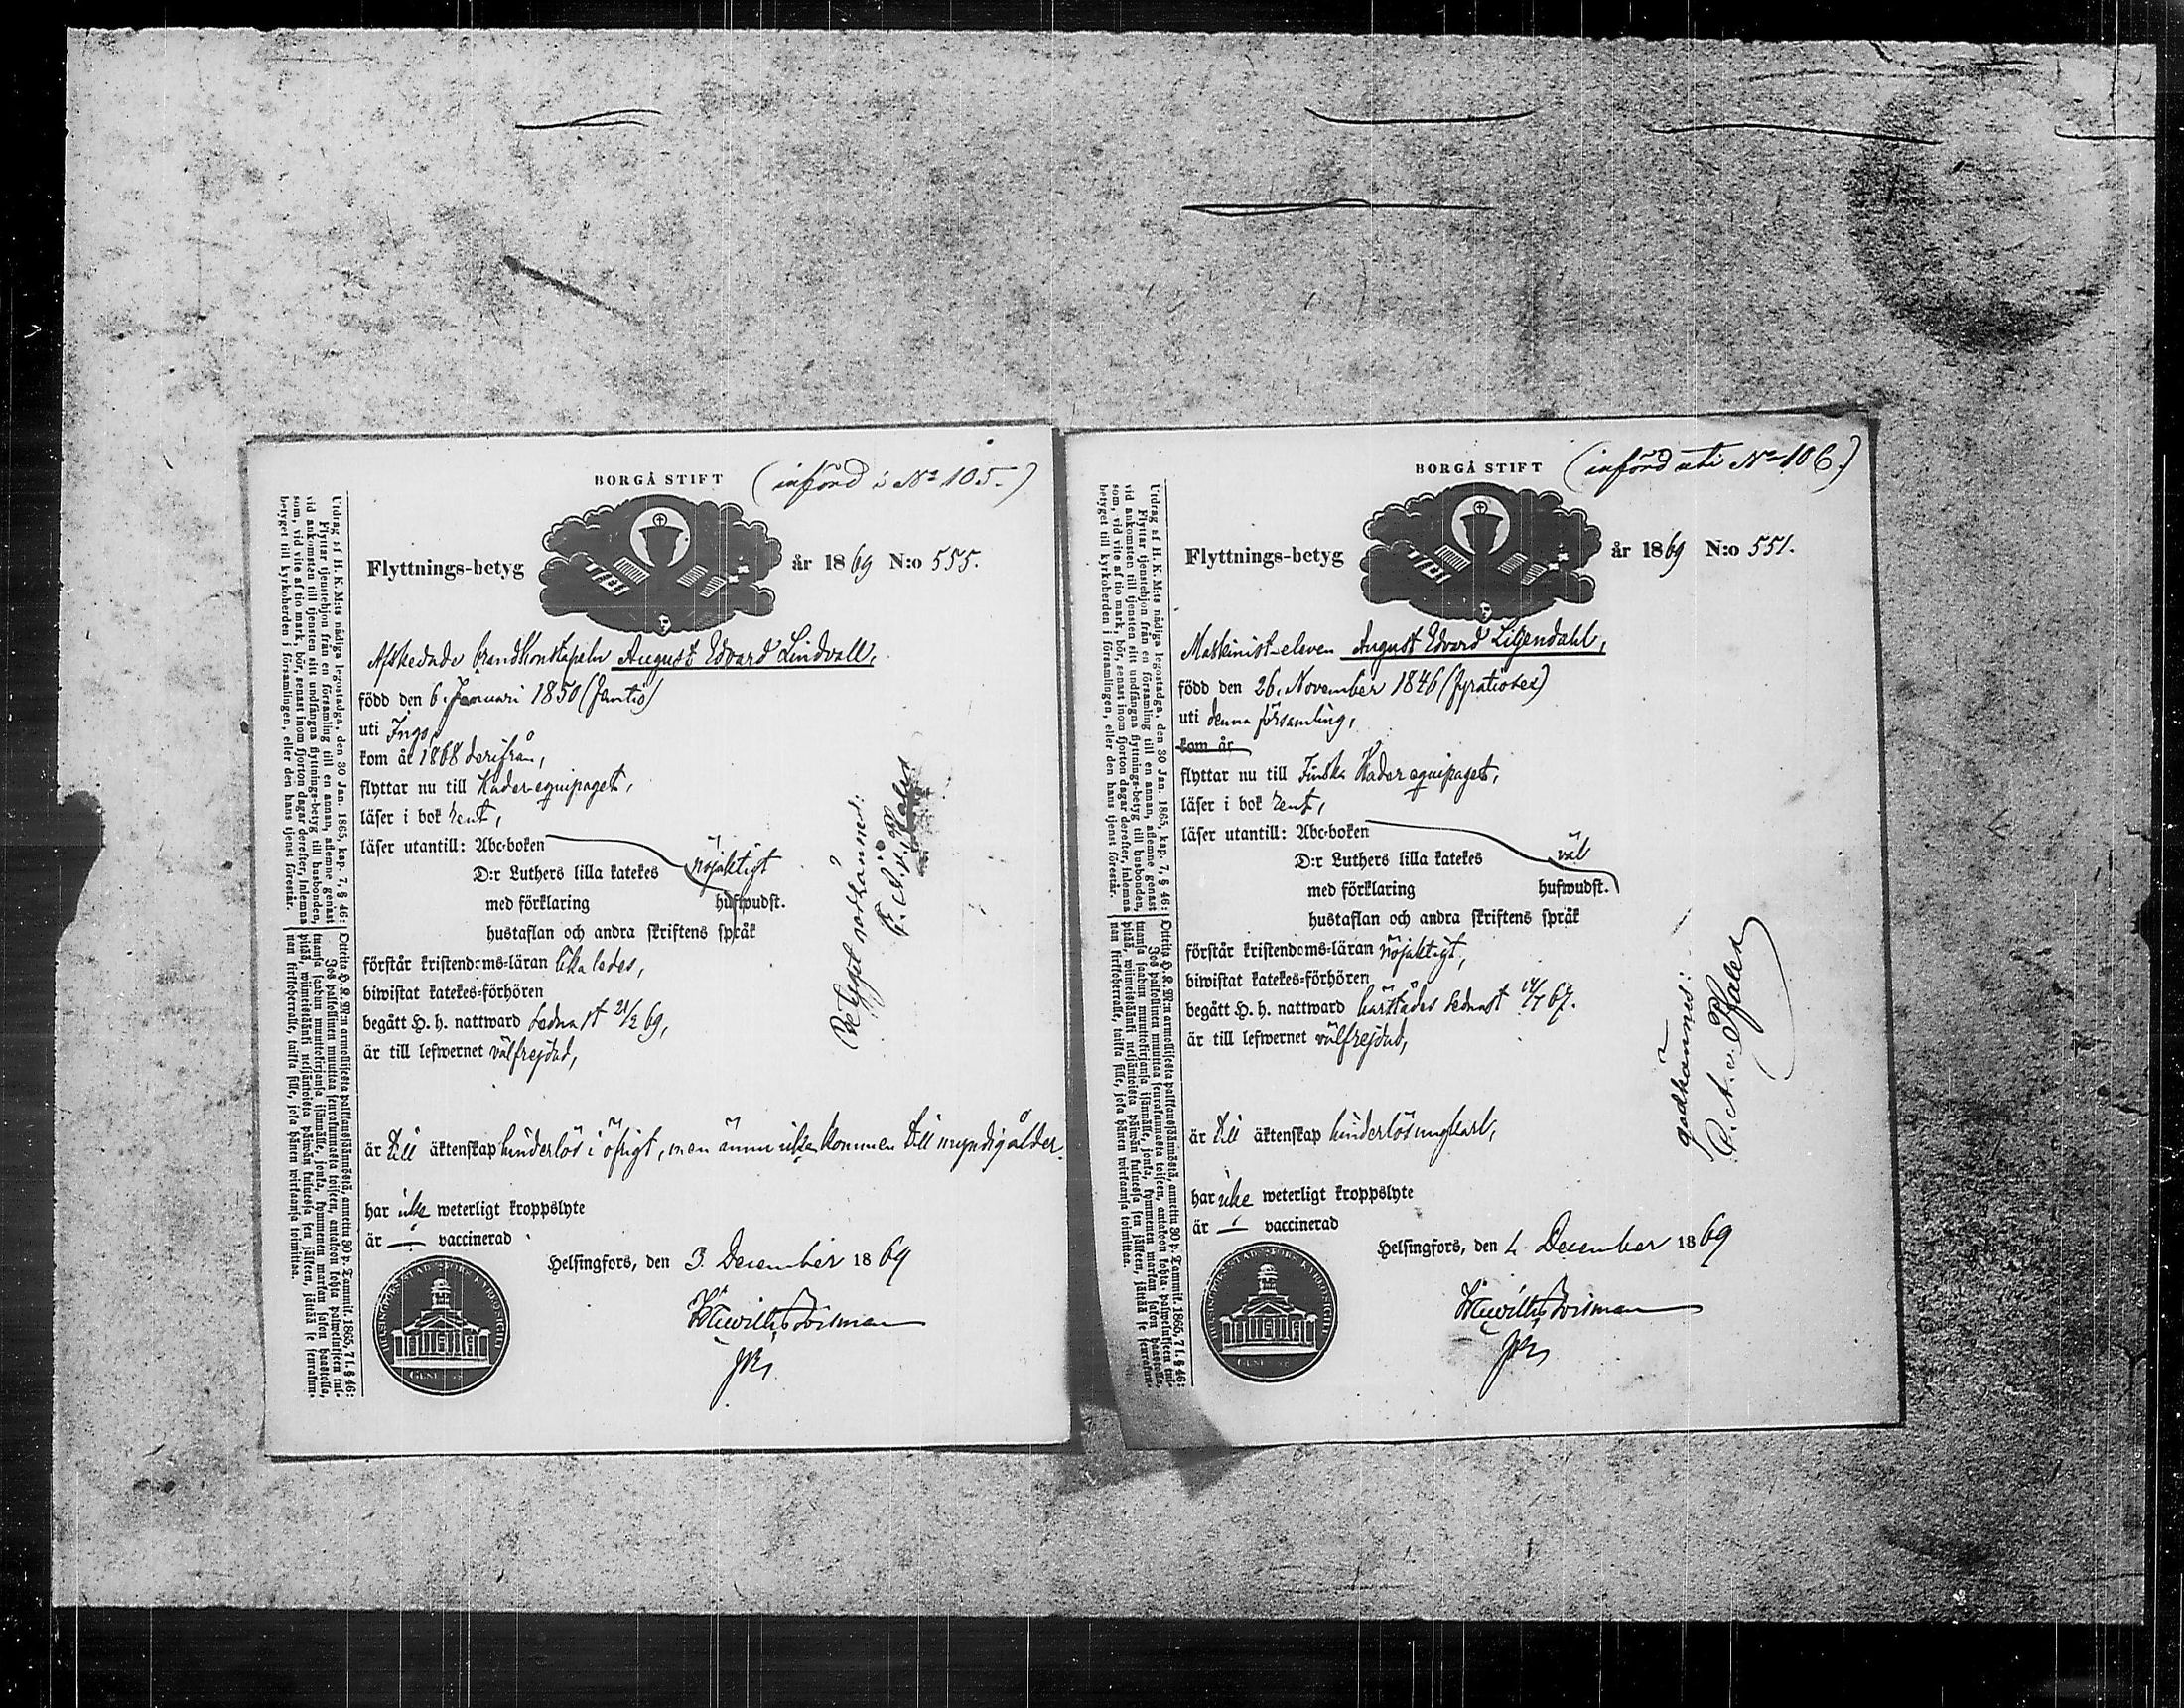 BORGÅ STIFT
(införd i No 105.)
Flyttnings-betyg år 1869 N:o 555.
Afskedade brandkonstapeln August Edvard Lindvall,
född den 6. Januari 1850 (femtio)
uti Ingo,
kom år 1868 derifrån,
flyttar nu till Kader-equipaget,
läser i bok rent,
läser utantill: Abc-boken
D:r Luthers lilla katekes nöjaktigt
med förklaring hufwudst.
hustaflan och andra skriftens språk
förstår kristendoms-läran lika ledes,
biwistat katekes-förhören
begått H. h. nattward sednast 21/2 69,
är till lefwernet välfrejdad,
är till äktenskap hinderlös i öfrigt, men ännu icke kommen till myndig ålder.
har icke weterligt kroppslyte
är — vaccinerad
Helsingfors, den 3. December 1869
Betyget godkännes:
Utdrag af H. K. M:ts nådiga legostadga, den 30 Jan. 1865, kap. 7, § 46:
Flyttar tjenstehjon från en församling till en annan, aflemne genast
vid ankomsten till tjensten sitt undfångna flyttnings-betyg till husbonden,
som, vid vite af tio mark, bör, senast inom fjorton dagar derefter, inlemna
betyget till kyrkoherden i församlingen, eller den hans tjenst förestår.
BORGÅ STIFT
(införd uti No 106.)
Flyttnings-betyg år 1869 N:o 551.
Maskinist-eleven August Edvard Liljendahl,
född den 26. November 1846 (fyratiosex)
uti denna församling,
kom år
flyttar nu till Finska Kader equipaget,
läser i bok rent,
läser utantill: Abc-boken
D:r Luthers lilla katekes väl
med förklaring hufwudst.
hustaflan och andra skriftens språk
förstår kristendoms-läran nöjaktigt,
biwistat katekes-förhören
begått H. h. nattward härstädes sednast 14/7 67.
är till lefwernet välfrejdad,
är till äktenskap hinderlös ungkarl,
har icke weterligt kroppslyte
är — vaccinerad
Helsingfors, den 4. December 1869
godkännes:
C. A. v. Pfaler
Utdrag af H. K. M:ts nådiga legostadga, den 30 Jan. 1865, kap. 7, § 46:
Flyttar tjenstehjon från en församling till en annan, aflemne genast
vid ankomsten till tjensten sitt undfångna flyttnings-betyg till husbonden,
som, vid vite af tio mark, bör, senast inom fjorton dagar derefter, inlemna
betyget till kyrkoherden i församlingen, eller den hans tjenst förestår.